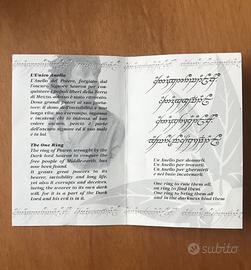 L'Unico Anello
Il Anello del Potere, forgiato dal
l'oscuro Signore Sauron per con-
quistare i popoli liberi della Terra
di Mezzo, adesso è stato ritrovato.
Dona grandi poteri al suo porta-
tore: il dono dell'invisibilità e una
lunga vita; ma corrompe, inganna
e incatena chi lo indossa al suo
volere oscuro, perché è parte
dell'oscuro signore ed il suo male
è in lui.
The One Ring
The ring of Power, wrought by the
Dark lord Sauron to conquer the
free people of Middle-earth, has
now been found.
It grants great powers to its
bearer, invisibility and long life,
yet also it corrupts and deceives,
luring the wearer to its own dark
will, for it is a part of the Dark
Lord and his evil is in it.
Un Anello per domarli,
Un Anello per trovarli,
Un Anello per ghermirli
e nel buio incatenarli.
One ring to rule them all,
one ring to find them
One ring to bring them all
and in the darkness bind them
subito